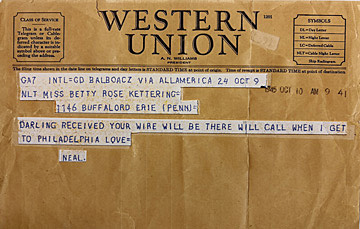 CLASS OF SERVICE
This is a full-rate
Telegram or Cable-
gram unless its de-
ferred character is in-
dicated by a suitable
symbol above or pre-
ceding the address.
WESTERN
UNION
1201
A. N. WILLIAMS
PRESIDENT
SYMBOLS
DL=Day Letter
NL=Night Letter
LC=Deferred Cable
NLT=Cable Night Letter
Ship Radiogram
The filing time shown in the date line on telegrams and day letters is STANDARD TIME at point of origin. Time of receipt is STANDARD TIME at point of destination
GA7 INTL=CD BALBOACZ VIA ALLAMERICA 24 OCT 9
NLT MISS BETTY ROSE KETTERING=
OCT 10 AM 9 41
1146 BUFFALORD ERIE (PENN)=
DARLING RECEIVED YOUR WIRE WILL BE THERE WILL CALL WHEN I GET
TO PHILADELPHIA LOVE=
NEAL.